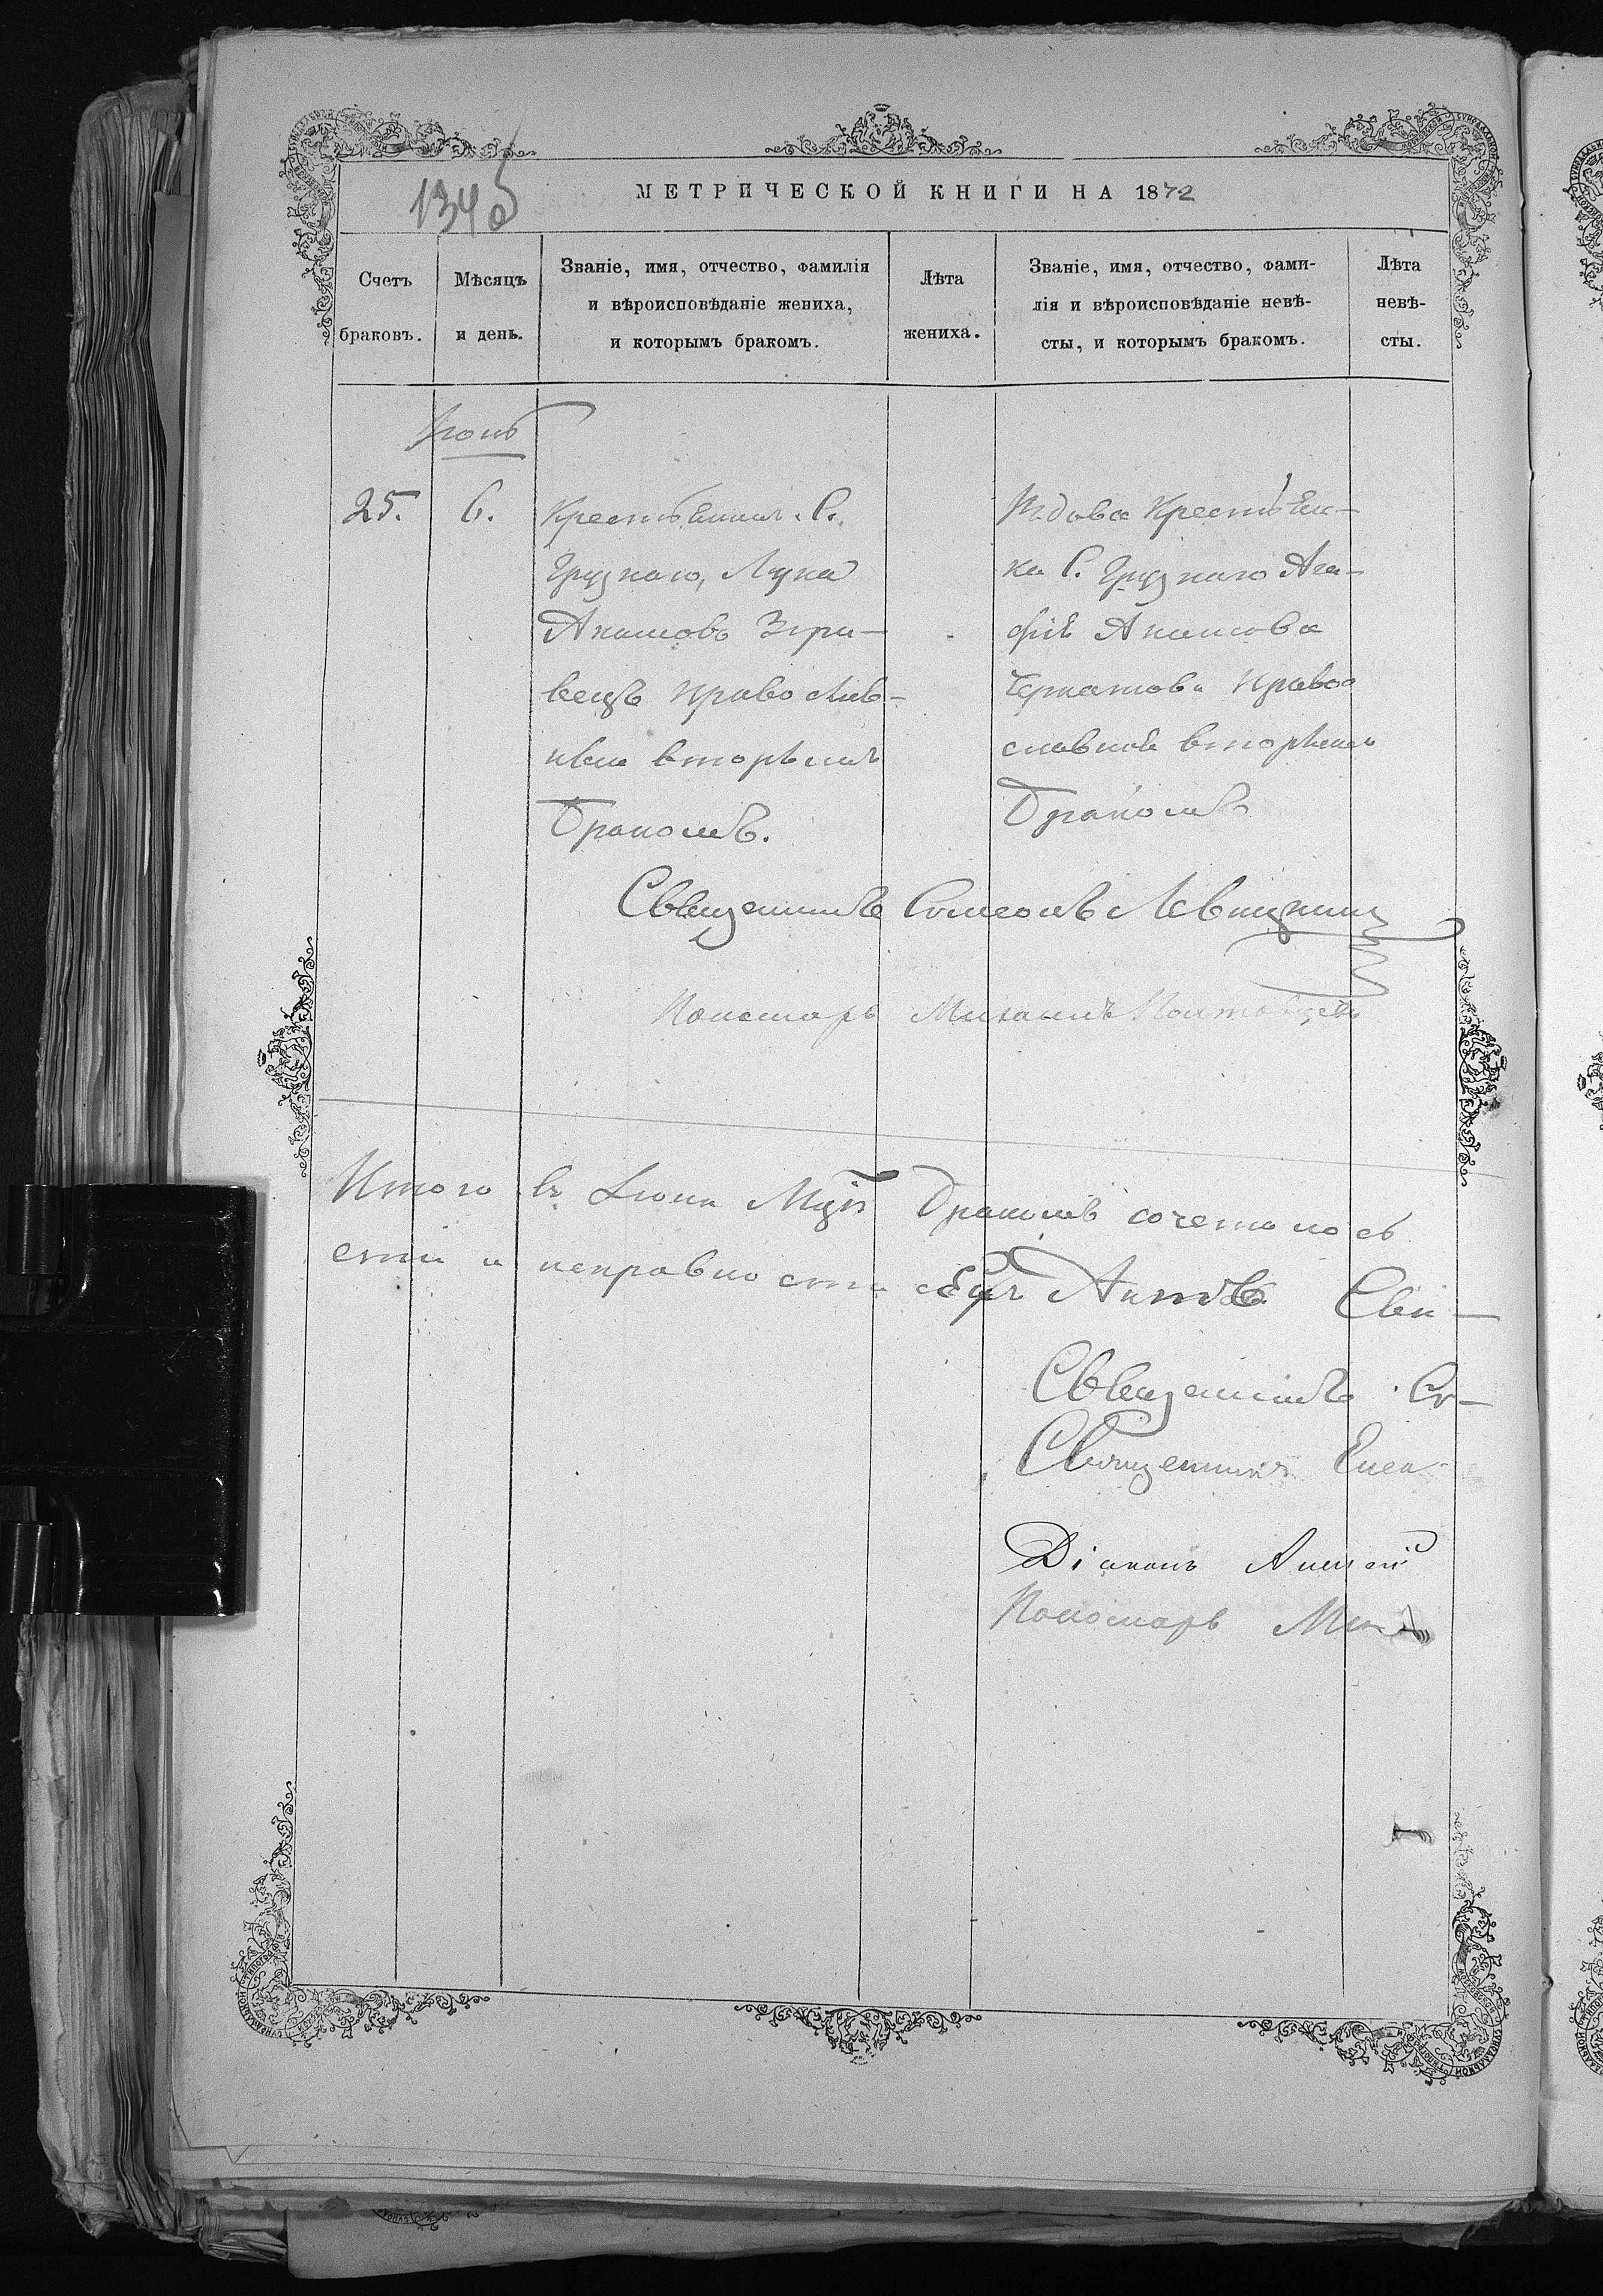 134об
МЕТРИЧЕСКОЙ КНИГИ НА 1872
Счетъ браковъ.
Мѣсяцъ и день.
Званіе, имя, отчество, фамилія
и вѣроисповѣданіе жениха,
и которымъ бракомъ.
Лѣта
жениха.
Званіе, имя, отчество, фами-
лія и вѣроисповѣданіе невѣ-
сты, и которымъ бракомъ.
Лѣта
невѣ-
сты.
Іюнь
25.
6.
Крестьянинъ С.
Грузкаго, Лука
Акимовъ
православ-
ный вторымъ
Бракомъ.
Вдова Крестьян-
ка С. Грузкаго Ага-
фія Акимова
Право-
славная вторымъ
Бракомъ
Священникъ Симеонъ Левицкий
Пономарь Михаилъ
Итого въ Іюни Мцѣ Бракомъ сочеталось
сти и исправности сихъ Актовъ Сви-
Священникъ Си-
Священникъ
Діаконъ
Пономарь Ми